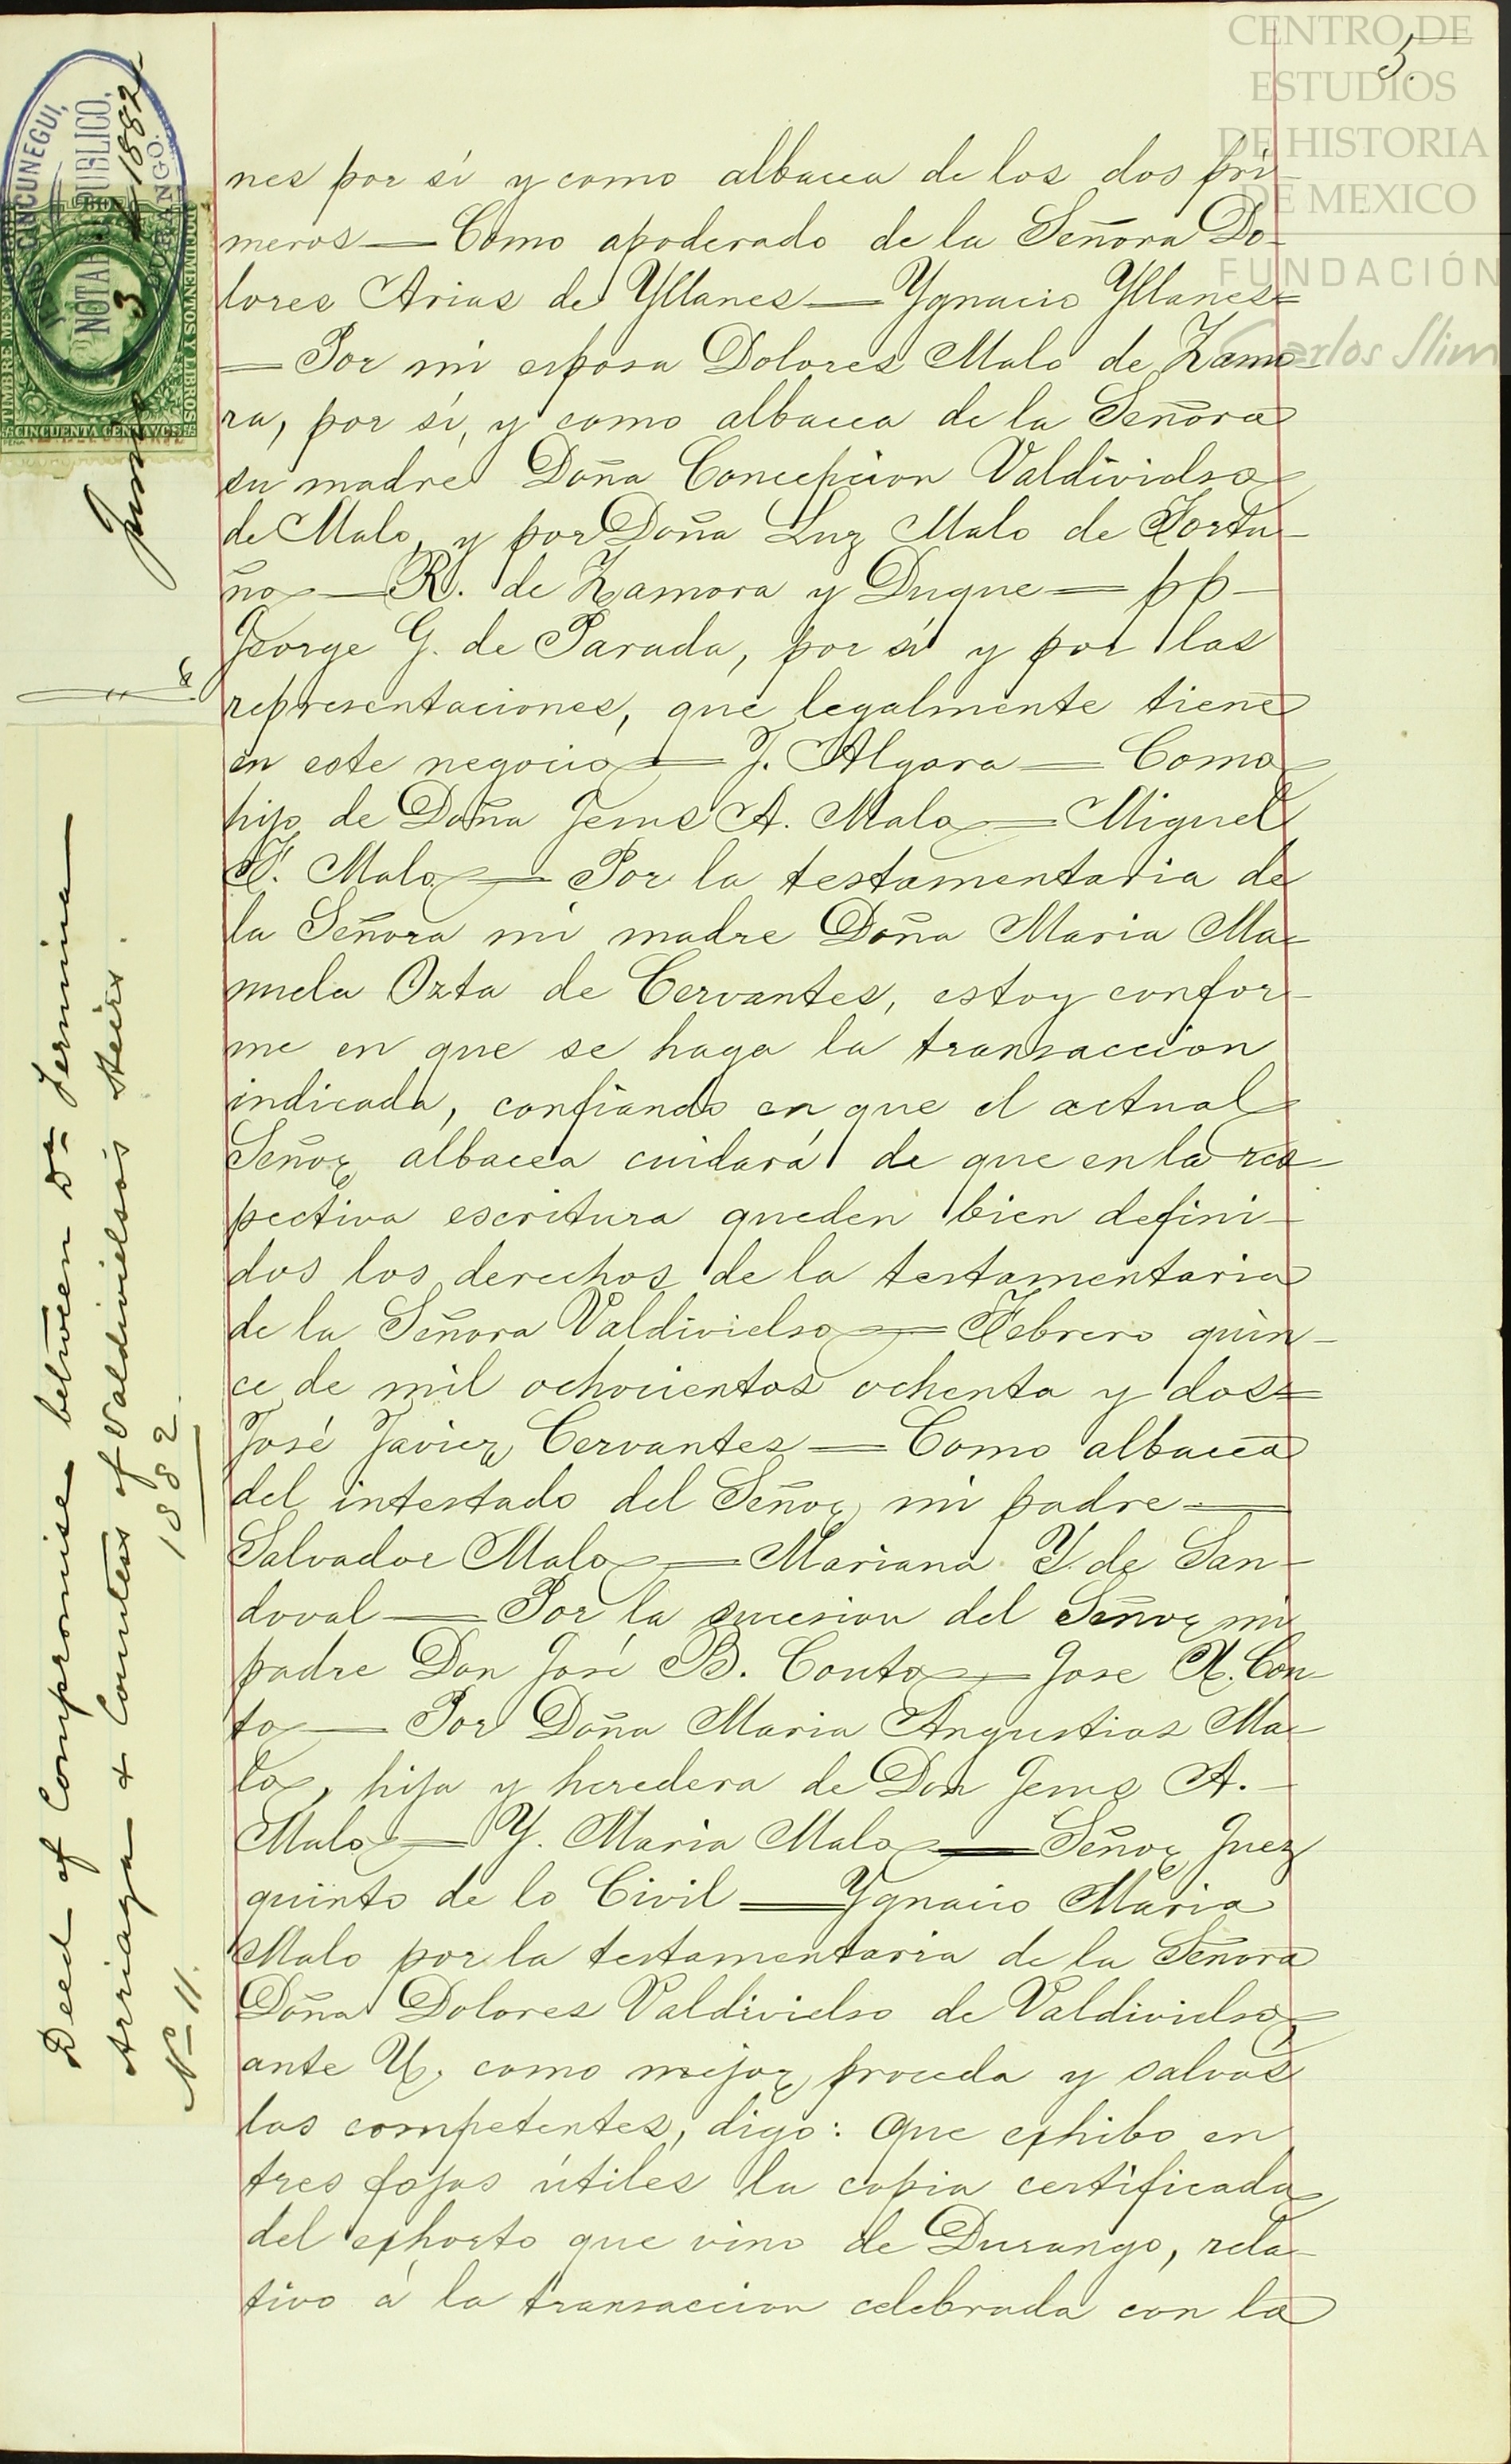 CENTRO DE
ESTUDIOS
DE HISTORIA
DE MEXICO
FUNDACIÓN
Carlos Slim
5.
nes por sí y como albacea de los dos pri-
meros — Como apoderado de la Señora Do-
lores Arias de Yllanes — Ygnacio Yllanes =
= Por mi esposa Dolores Malo de Zamo-
ra, por sí, y como albacea de la Señora
su madre Doña Concepcion Valdivielso
de Malo, y por Doña Luz Malo de Fortu-
ño — R. de Zamora y Duque = pp —
George G. de Parada, por sí y por las
representaciones, que legalmente tiene
en este negocio = J. Algara = Como
hijo de Doña Jesus A. Malo = Miguel
F. Malo = Por la testamentaria de
la Señora mi madre Doña Maria Ma-
nuela Ozta de Cervantes, estoy confor-
me en que se haga la transaccion
indicada, confiando en que el actual
Señor albacea cuidará de que en la res-
pectiva escritura queden bien defini-
dos los derechos de la testamentaria
de la Señora Valdivielso = Febrero quin-
ce de mil ochocientos ochenta y dos =
José Javier Cervantes = Como albacea
del intestado del Señor mi padre =
Salvador Malo = Mariana Y. de San-
doval — Por la sucesion del Señor mi
padre Don José B. Couto = Jose X. Cou-
to — Por Doña Maria Angustias Ma-
lo, hija y heredera de Don Jesus A. —
Malo = Y. Maria Malo = Señor Juez
quinto de lo Civil = Ygnacio Maria
Malo por la testamentaria de la Señora
Doña Dolores Valdivielso de Valdivielso,
ante U. como mejor proceda y salvas
las competentes, digo: que exhibo en
tres fojas útiles la copia certificada
del exhorto que vino de Durango, rela-
tivo á la transaccion celebrada con la
CINCUNEGUI,
NOTARIO PUBLICO.
DURANGO.
Junio 3 de 1882
DOCUMENTOS Y LIBROS
CINCUENTA CENTAVOS
Deed of Compromise between Da. Fermina
Arriaga & Countess of Valdivielso's Heirs.
1882.
No. 11.